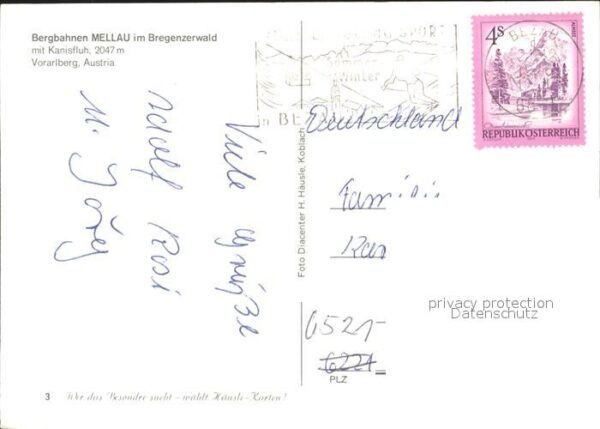 Bergbahnen MELLAU im Bregenzerwald
mit Kanisfluh, 2047 m
Vorarlberg, Austria
Viele Grüße
Adolf Rosi
u. Jörg
Foto Diacenter H. Häusle, Koblach
SPORT
Sommer
Winter
in BEZAU
BEZAU
4S
REPUBLIK ÖSTERREICH
Deutschland
Familie
privacy protection
Datenschutz
6521-
6221
PLZ
3 Wer das Besondre sucht - wählt Häusle-Karten!